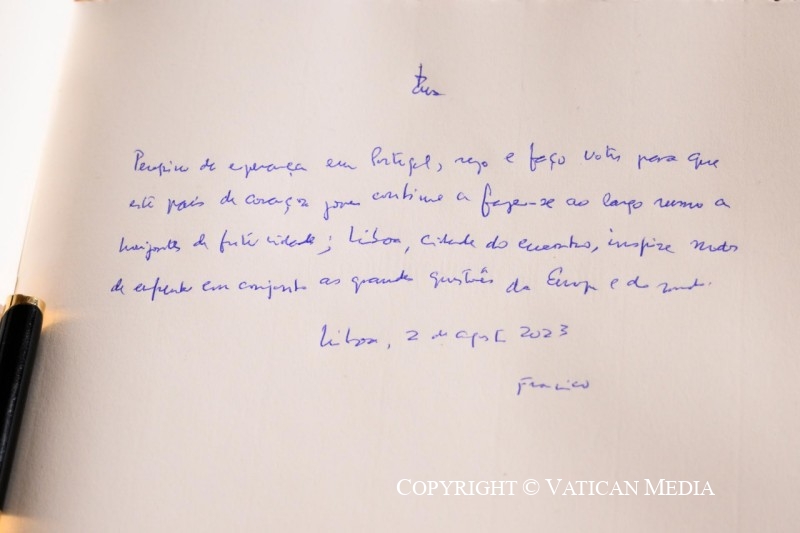 Peregrino de esperança em Portugal, rezo e faço votos para que
este país de coração jovem continue a fazer-se ao largo rumo a
horizontes de fraternidade; Lisboa, cidade do encontro, inspire modos
de enfrentar em conjunto as grandes questões da Europa e do mundo.
Lisboa, 2 de agosto 2023
Francisco
COPYRIGHT © VATICAN MEDIA